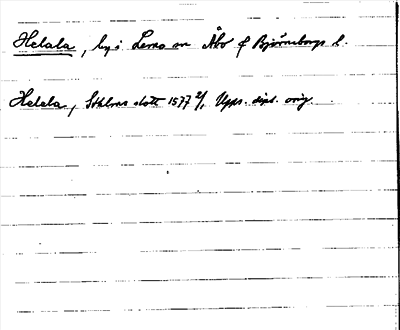 Helala, by i Lemo sn Åbo o Björneborgs l.
Helala, Sthlms slott 1577 2/1 Upps. dipl. orig.